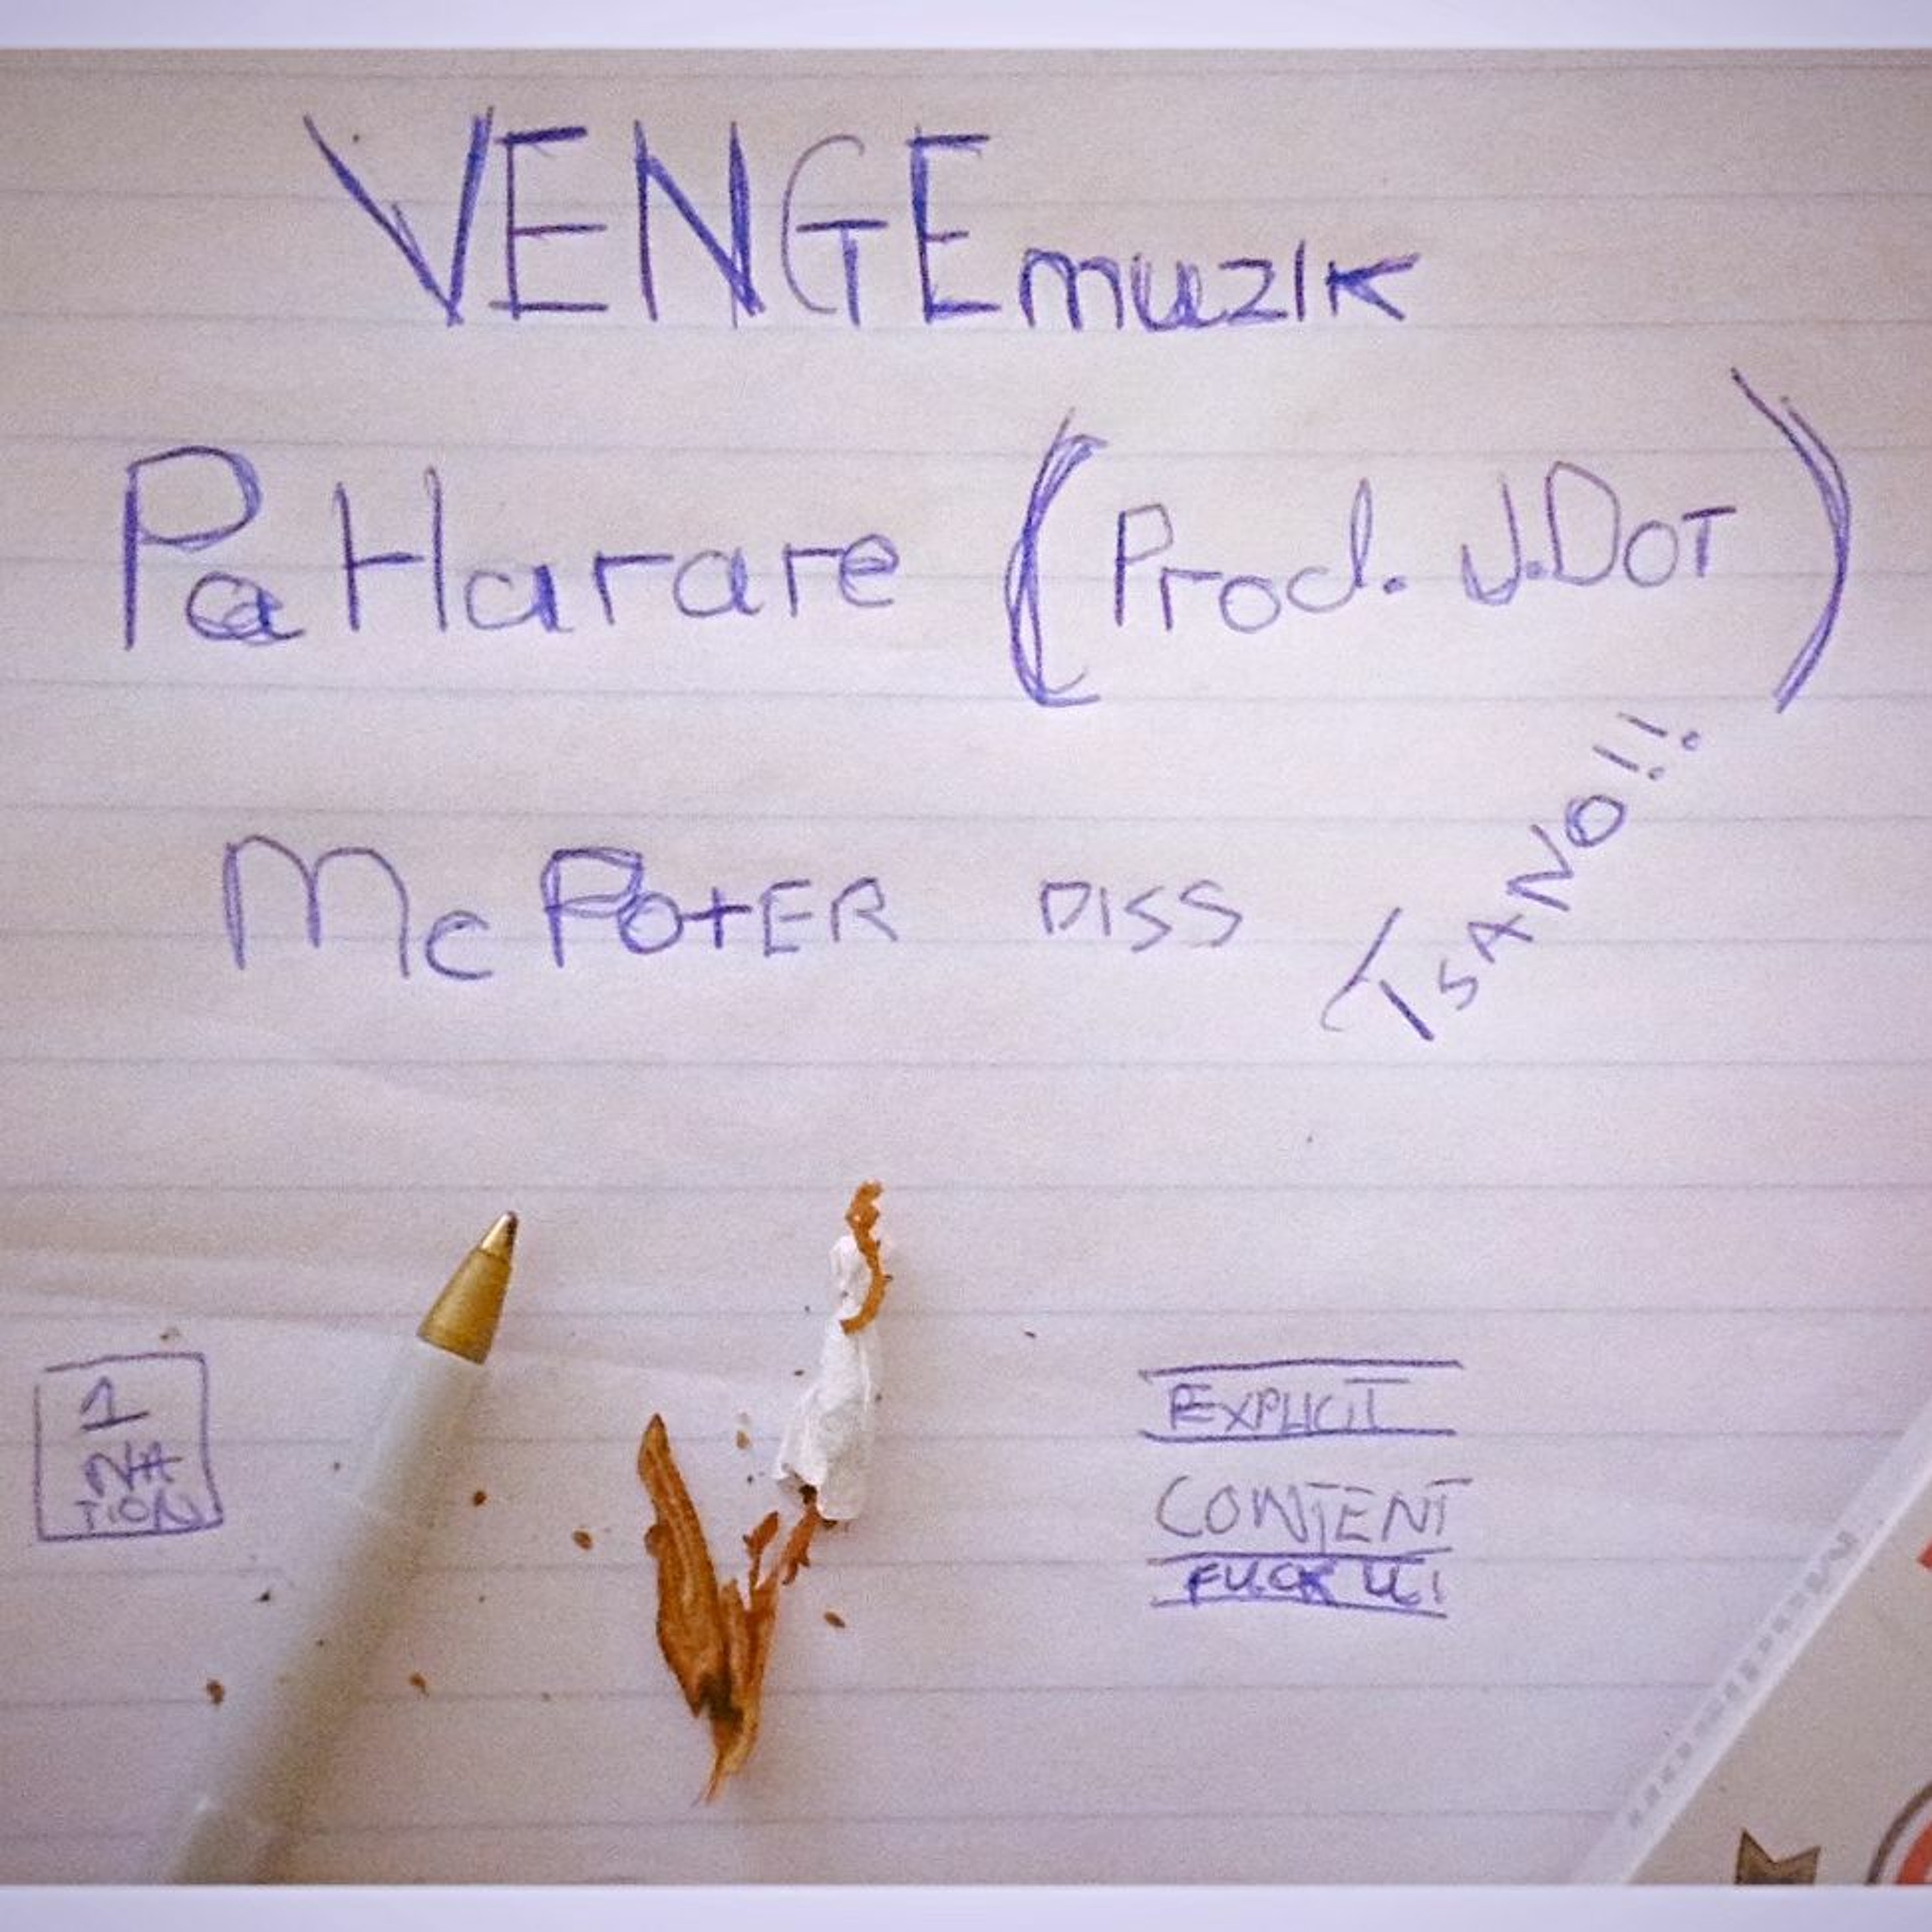 VENGE muzik
Pa Harare (Prod. J.DOT)
Mc PotER DISS TSANO!!
1
NA
TION
EXPLICIT
CONTENT
FUCK U!